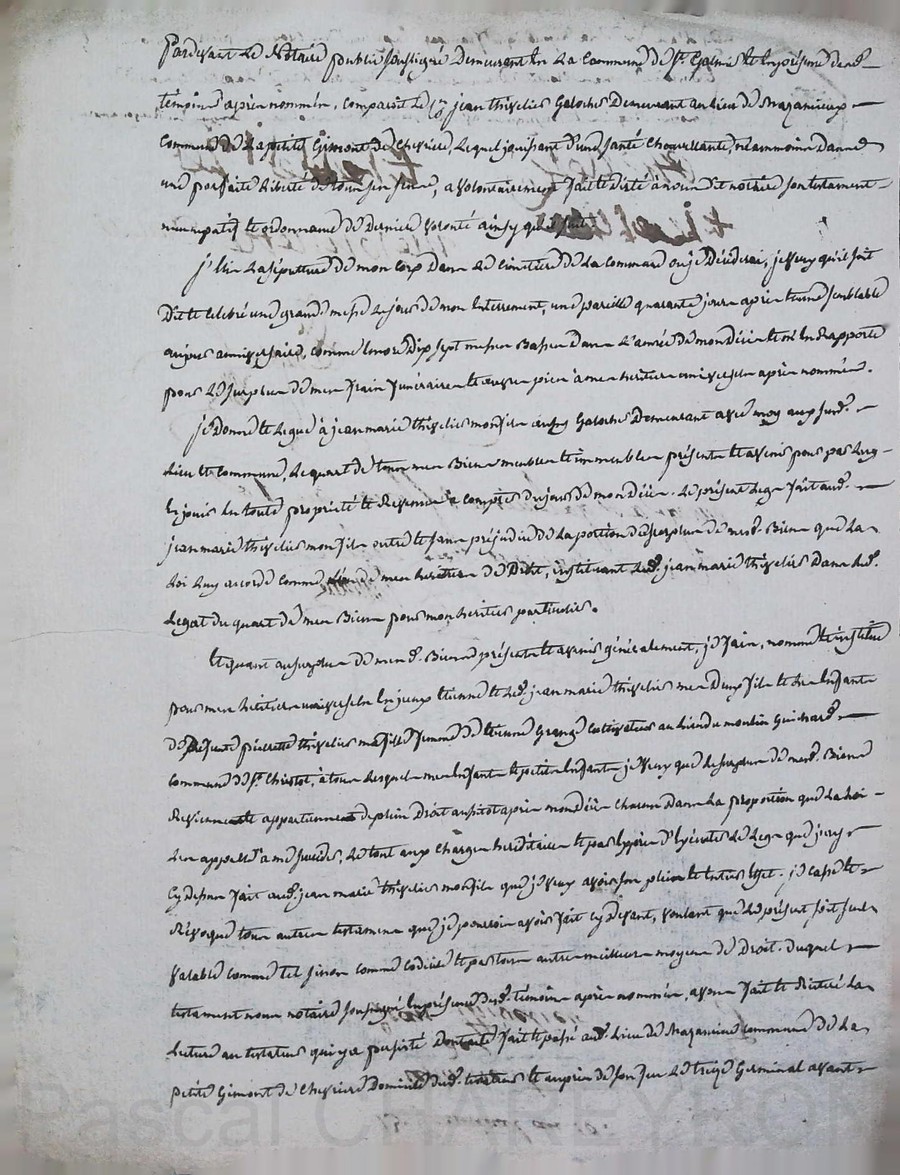 Pardevant Le Notaire public soussigné Demeurant En La Commune de St. Galmier Et En présence des d.
témoins après nommés, comparoit Le Cn. jean thivelier Galoches Demeurant au Lieu de Mazanieux
commune de La petite Gimont de Chevriere, Lequel jouissant d'une santé Chancellante, néammoins Dans
une parfaite Liberté de tous ses sens, a volontairement fait et dicté à nous dit notaire son testament
nuncupatif et ordonnance de Derniere volonté ainsy qu'il suit.
j'Elis La sépulture de mon Corp Dans Le Cimetière de La Commune ou je Décéderai, je veux qu'il soit
Dit et Célébré une grande messe Le jour de mon Enterrement, une pareille quarante jours après Et une semblable
au jour anniversaire, comme encore Dix sept messes Basses Dans L'année de mon Décès Et m'En Rapporte
pour Le surplus de mes frais funéraires Et œuvres pies à mes heritiers universels après nommés.
je Donne Et Legue à jean marie thivelier mon fils aussy Galoches Demeurant avec moy au susd.
Lieu Et Commune, Le quart de tous mes Biens meubles Et immeubles présents Et avenir pour par Luy
En jouir En toute propriété Et Revenus à compter du jour de mon Décès. Le présent Legs fait aud.
jean marie thivelier mon fils outre Et sans préjudice de La portion du surplus de mesd. Biens que La
Loi Luy accorde comme de mes heritiers de Droit, instituant Led. jean marie thivelier Dans Led.
Legat du quart de mes Biens pour mon heritier particulier.
Et quant au surplus de mesd. Biens présents Et avenir généralement, je fais, nomme Et institue
pour mes heritiers universels En jeux Etienne Et Led. jean marie thivelier mes Deux fils Et Les Enfants
de Défunte pierrette thivelier ma fille femme de Etienne Grange Cultivateur au Lieu du moulin Guichard
commune de St. Christot, à tous Lesquels mes Enfants Et petits Enfants je veux que Le surplus de mesd. Biens
Reviennent Et appartiennent de plein Droit aussitot après mon Décès Chacun Dans La proportion que La Loi
Les appelle à me succéder, Le tout aux Charges héréditaires Et par Exprès d'Exécuter Le Legs que j'ay
Cy dessus fait aud. jean marie thivelier mon fils que je veux avoir son plein Et Entier Effet. je Casse Et
Révoque tous autres testaments que je pourrois avoir fait Cy Devant, voulant que Le présent soit seul
Valable comme tel sinon comme Codicile Et par tous autres meilleurs moyens de Droit. Duquel
testament nous notaire soussigné En présence desd. témoins après nommés, avons fait Et Réitéré La
Lecture au testateur qui y a persisté Dont acte fait Et passé aud. Lieu de Mazanieux commune de La
petite Gimont de Chevriere Domicile dud. testateur Et auprès de son feu Le treize Germinal avant